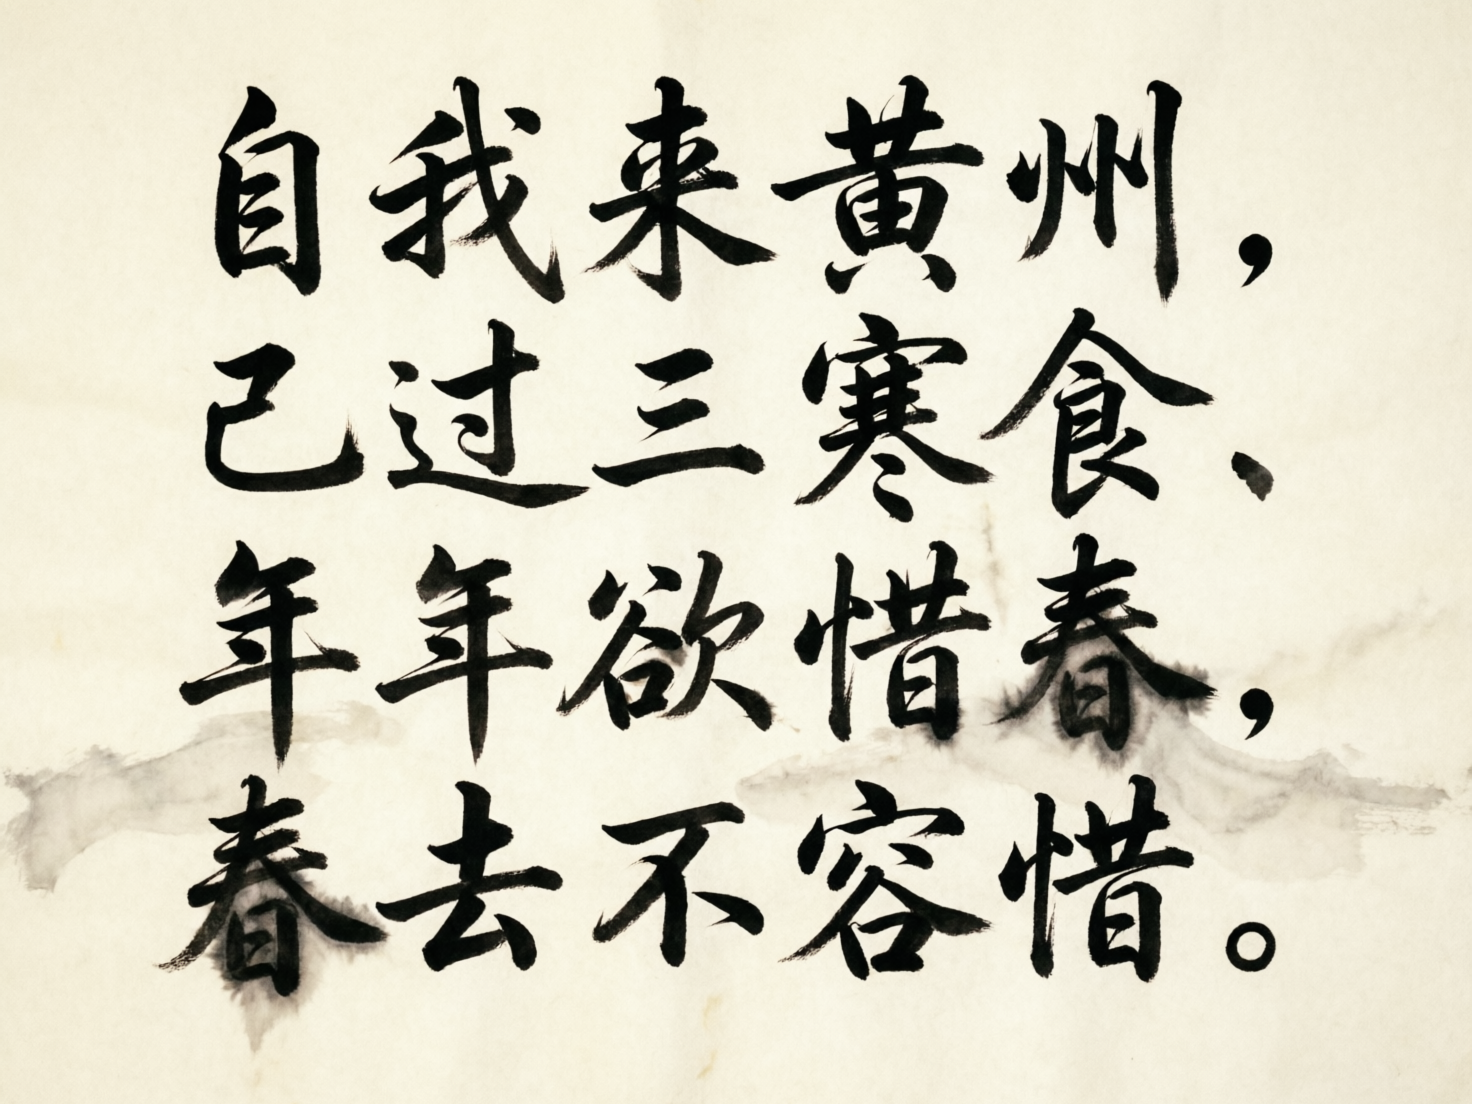 自我来黄州，
己过三寒食、
年年欲惜春，
春去不容惜。